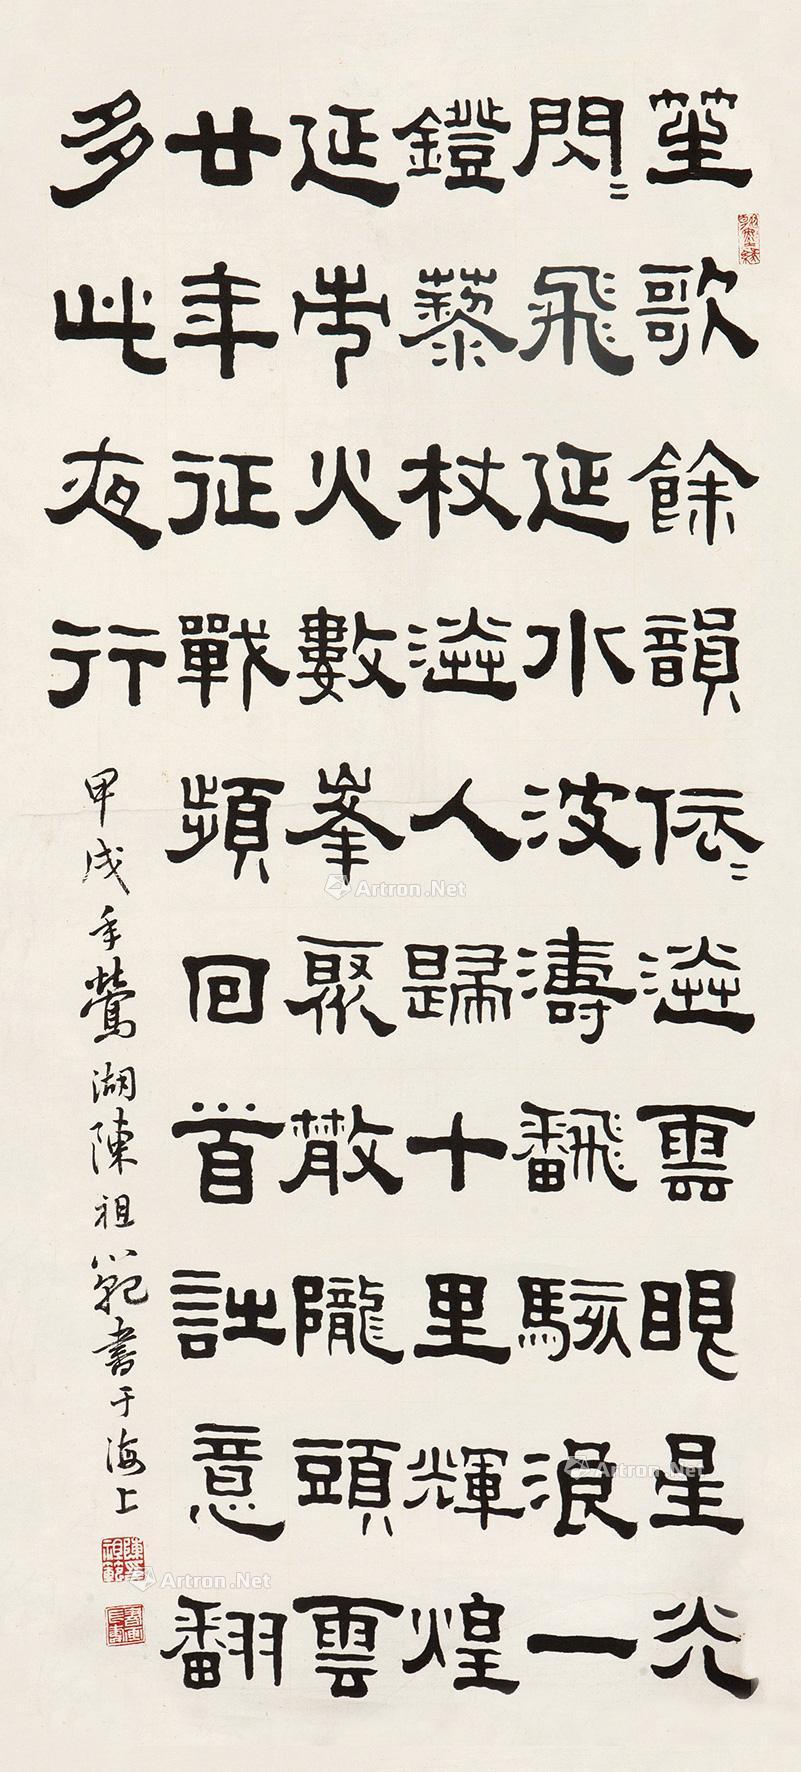 笙歌餘韻依〻送雲眼星光
閃〻飛延水波濤飜駭浪一
鐙藜杖送人歸十里輝煌
延市火數峯聚散隴頭雲
廿年征戰頻回首詎意翻
多此夜行
甲戌年鶯湖陳祖範書于海上
Artron.Net
Artron.Net
Artron.Net